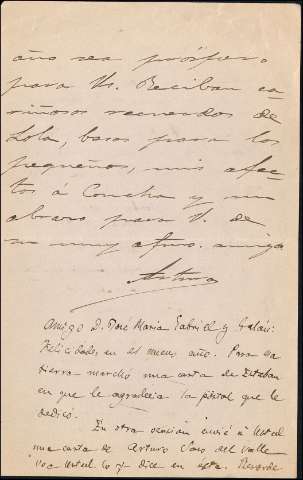 año sea próspero
para Vs. Reciban ca
riñosos recuerdos de
Lola, besos para los
pequeños, mis afec-
tos á Concha y un
abrazo para V. de
su muy afmo. amigo
Arturo
Amigo D. José María Gabriel y Galán:
Felicidades en el nuevo año. Para esa
tierra marchó una carta de Esteban
en que le agradecía la postal que le
dedicó.
En otra ocasión envié á Usted
una carta de Arturo del Valle
Usted lo q. dice en esta. Recuerde